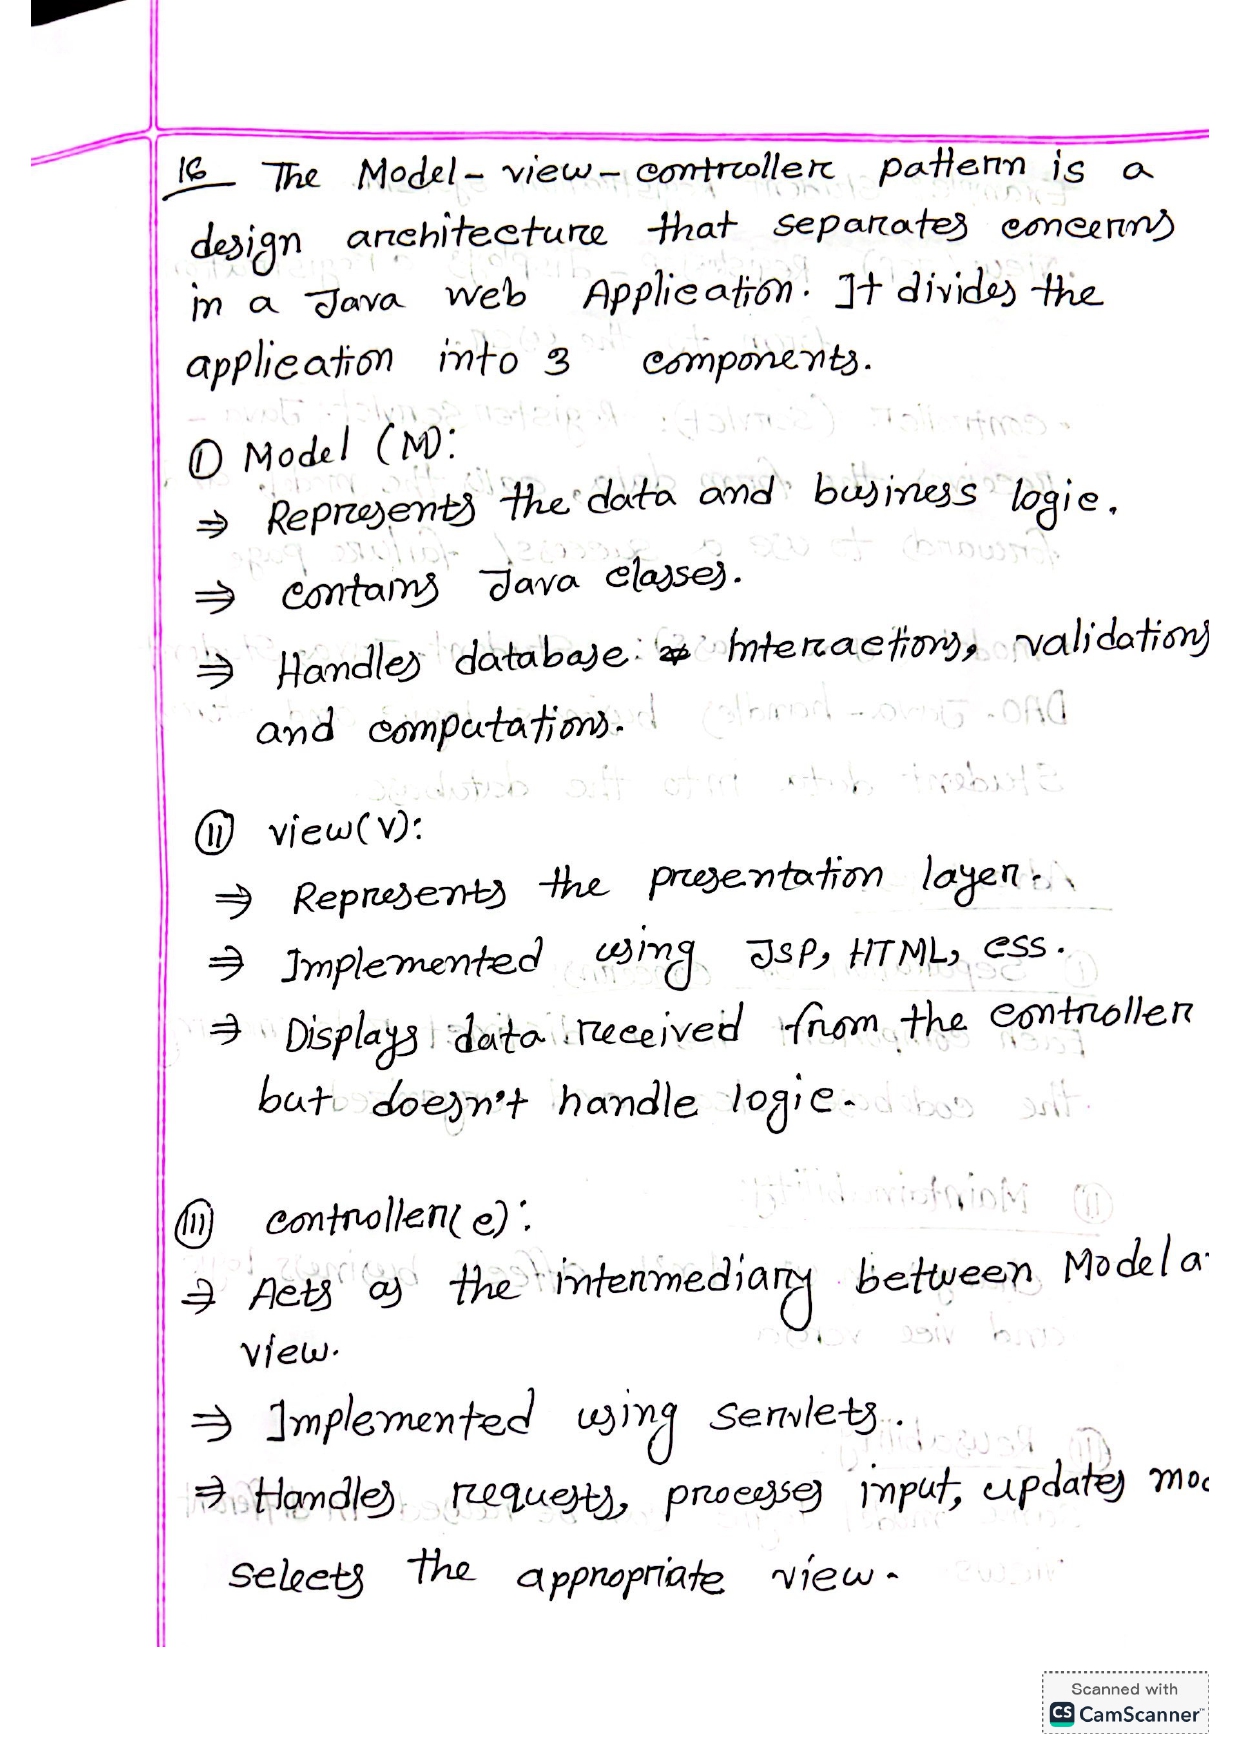 16 The Model-view-controller pattern is a
design architecture that separates concerns
in a Java web Application. It divides the
application into 3 components.
① Model (M):
⇒ Represents the data and business logic.
⇒ contains Java classes.
⇒ Handles database Interactions, validations
and computations.
⑪ view(V):
⇒ Represents the presentation layer.
⇒ Implemented using JSP, HTML, CSS.
⇒ Displays data received from the controller
but doesn't handle logic.
(III) controller(c):
⇒ Acts as the intermediary between Model a
view.
⇒ Implemented using servlets.
⇒ Handles requests, processes input, updates mo
selects the appropriate view.
Scanned with
CS CamScanner